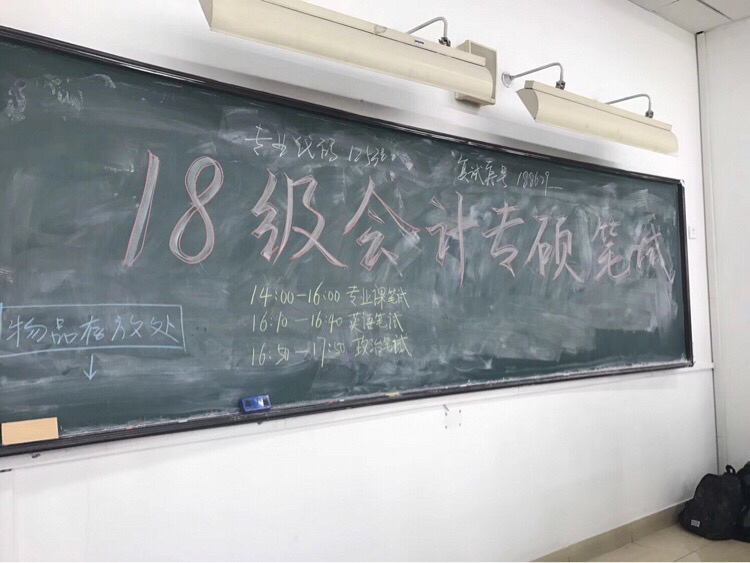 专业代码 125300
复试来号 188679
18级会计专硕笔试
14:00—16:00 专业课笔试
16:10—16:40 英语笔试
16:50—17:50 政治笔试
物品存放处
↓